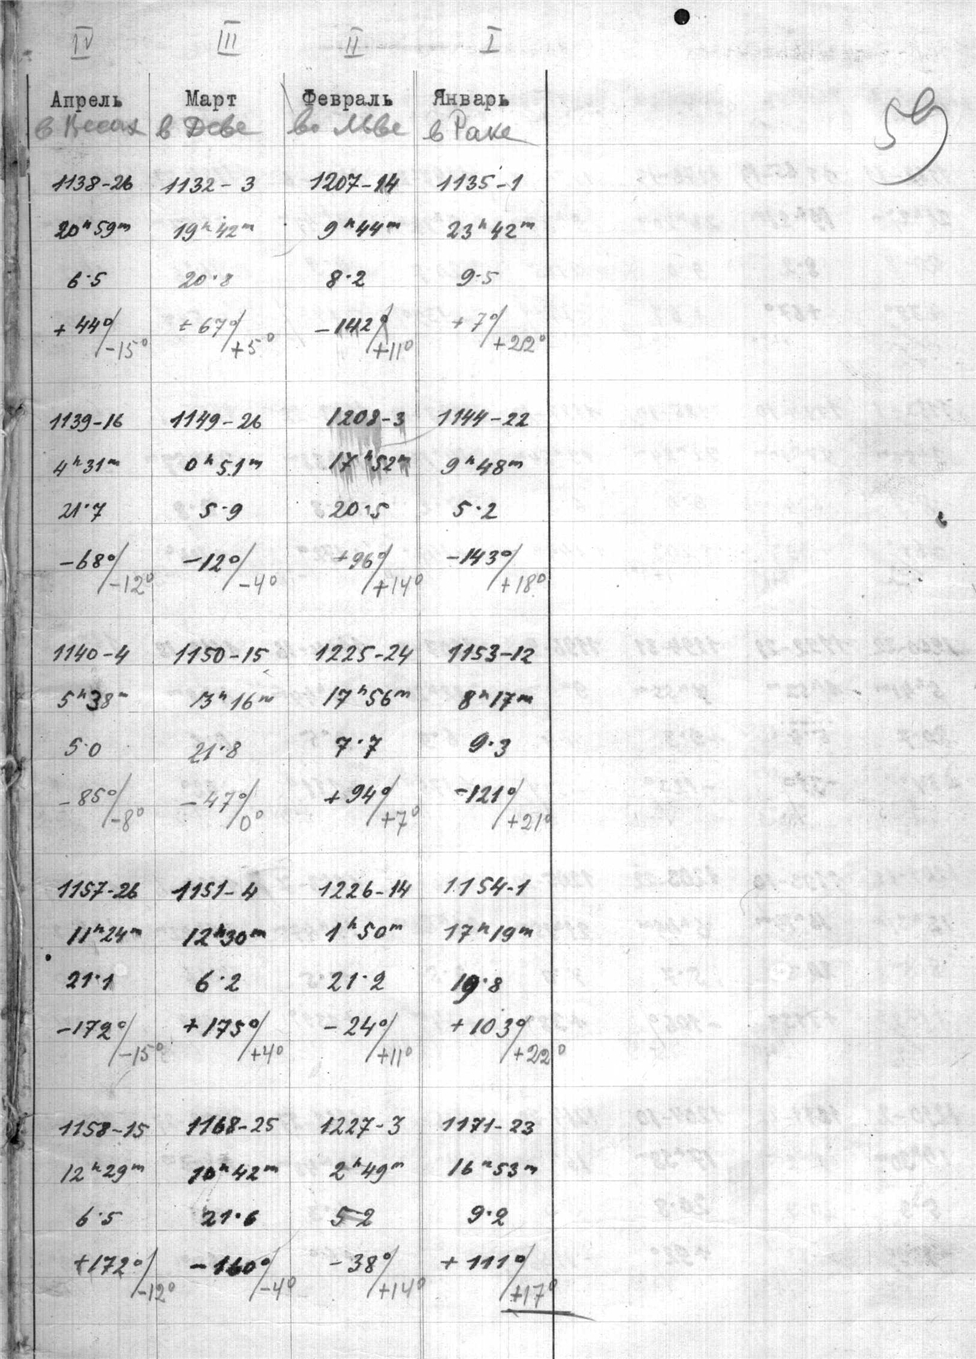 IV III II I
Апрель Март Февраль Январь
в Весах в Деве во Льве в Раке
59
1138-26 1132-3 1207-14 1135-1
20ʰ59ᵐ 19ʰ42ᵐ 9ʰ44ᵐ 23ʰ42ᵐ
6·5 20·8 8·2 9·5
+44°/-15° +67°/+5° -142°/+11° +7°/+22°
1139-16 1149-26 1208-3 1144-22
4ʰ31ᵐ 0ʰ51ᵐ 17ʰ52ᵐ 9ʰ48ᵐ
21·7 5·9 20·5 5·2
-68°/-12° -12°/-4° +96°/+14° -143°/+18°
1140-4 1150-15 1225-24 1153-12
5ʰ38ᵐ 13ʰ16ᵐ 17ʰ56ᵐ 8ʰ17ᵐ
5·0 21·8 7·7 9·3
-85°/-8° -47°/0° +94°/+7° -121°/+21°
1157-26 1151-4 1226-14 1154-1
11ʰ24ᵐ 12ʰ30ᵐ 1ʰ50ᵐ 17ʰ19ᵐ
21·1 6·2 21·2 19·8
-172°/-15° +175°/+4° -24°/+11° +103°/+22°
1158-15 1168-25 1227-3 1171-23
12ʰ29ᵐ 10ʰ42ᵐ 2ʰ49ᵐ 16ʰ53ᵐ
6·5 21·6 5-2 9·2
+172°/-12° -160°/-4° -38°/+14° +111°/+17°